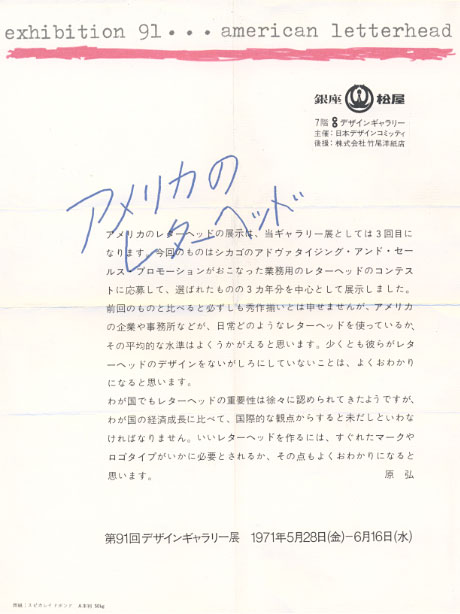 exhibition 91 ... american letterhead
銀座 松屋
7階 デザインギャラリー
主催：日本デザインコミッティ
後援：株式会社竹尾洋紙店
アメリカの
レターヘッド
アメリカのレターヘッドの展示は、当ギャラリー展としては3回目に
なります。今回のものはシカゴのアドヴァタイジング・アンド・セー
ルス・プロモーションがおこなった業務用のレターヘッドのコンテス
トに応募して、選ばれたものの3カ年分を中心として展示しました。
前回のものと比べると必ずしも秀作揃いとは申せませんが、アメリカ
の企業や事務所などが、日常どのようなレターヘッドを使っているか、
その平均的な水準はよくうかがえると思います。少くとも彼らがレタ
ーヘッドのデザインをないがしろにしていないことは、よくおわかり
になると思います。
わが国でもレターヘッドの重要性は徐々に認められてきたようですが、
わが国の経済成長に比べて、国際的な観点からすると未だしといわな
ければなりません。いいレターヘッドを作るには、すぐれたマークや
ロゴタイプがいかに必要とされるか、その点もよくおわかりになると
思います。 原 弘
第91回デザインギャラリー展 1971年5月28日(金)−6月16日(水)